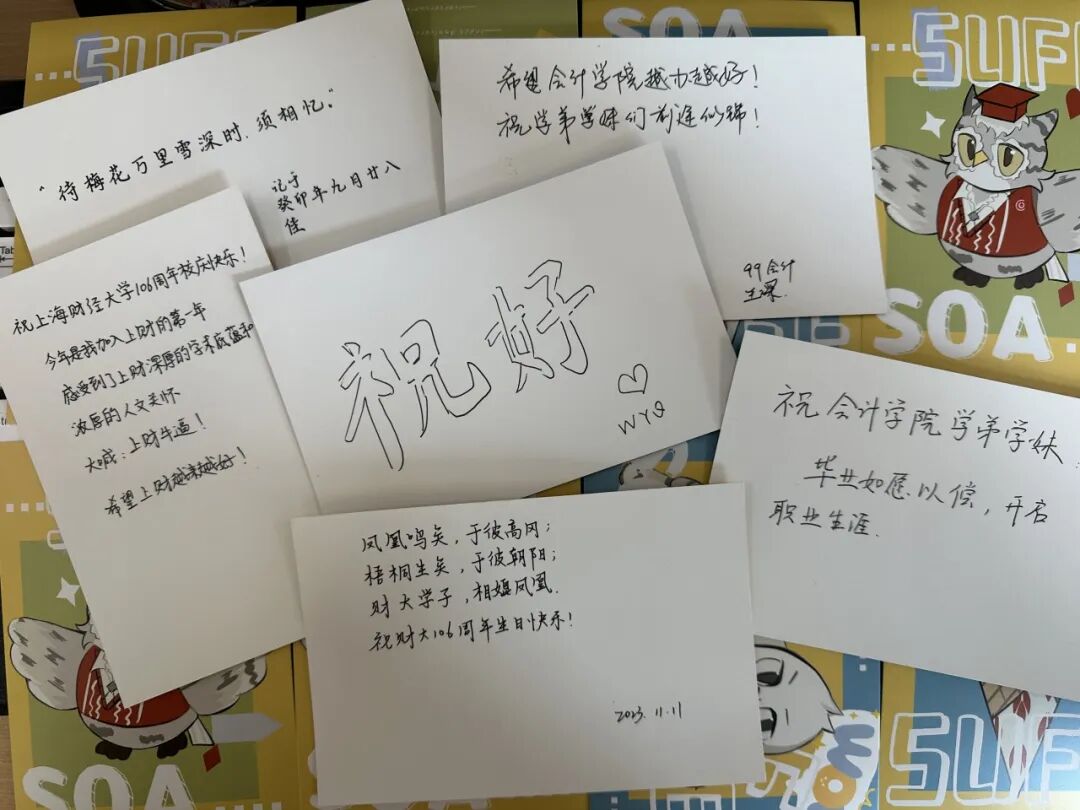 "待梅花万里雪深时，须相忆。"
记于
癸卯年九月廿八
佳
希望会计学院越办越好！
祝学弟学妹们前途似锦！
99会计
祝上海财经大学106周年校庆快乐！
今年是我加入上财的第一年
感受到了上财深厚的学术底蕴和
浓厚的人文关怀
大喊：上财牛逼！
希望上财越来越好！
祝好
WYQ
祝会计学院学弟学妹：
毕业如愿以偿，开启
职业生涯.
凤凰鸣矣，于彼高冈；
梧桐生矣，于彼朝阳；
财大学子，相媲凤凰.
祝财大106周年生日快乐！
2023.11.11
SUFE
SOA
SUF
SOA
SOA
SUF